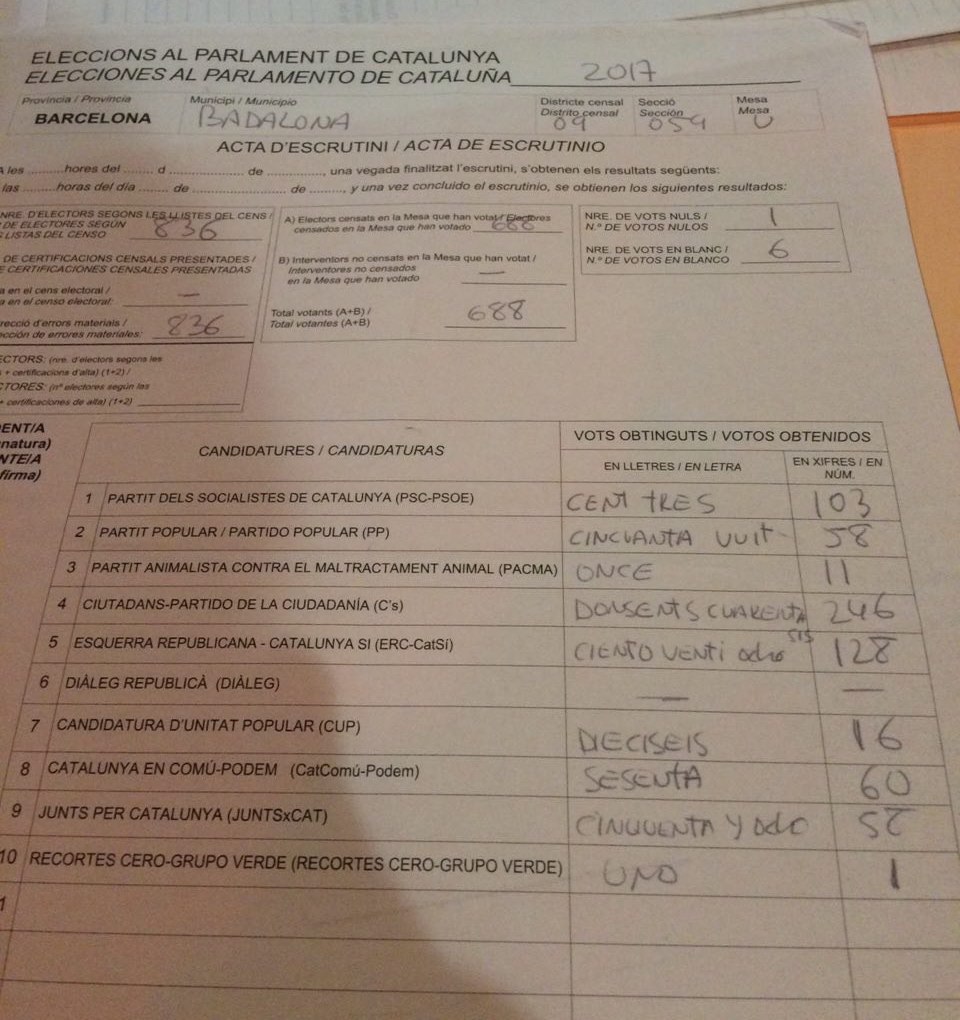 ELECCIONS AL PARLAMENT DE CATALUNYA
ELECCIONES AL PARLAMENTO DE CATALUÑA 2017
Província / Provincia
BARCELONA
Municipi / Municipio
BADALONA
Districte censal
Distrito censal
09
Secció
Sección
059
Mesa
Mesa
U
ACTA D'ESCRUTINI / ACTA DE ESCRUTINIO
A les ..........hores del ....... d .................... de .........., una vegada finalitzat l'escrutini, s'obtenen els resultats següents:
las .........horas del día ....... de ...................... de ......, y una vez concluido el escrutinio, se obtienen los siguientes resultados:
NRE. D'ELECTORS SEGONS LES LLISTES DEL CENS /
DE ELECTORES SEGÚN
LISTAS DEL CENSO 836
DE CERTIFICACIONS CENSALS PRESENTADES /
E CERTIFICACIONES CENSALES PRESENTADAS
a en el cens electoral /
a en el censo electoral: —
recció d'errors materials /
cción de errores materiales: 836
ECTORS: (nre. d'electors segons les
s + certificacions d'alta) (1+2) /
CTORES: (nº electores según las
+ certificaciones de alta) (1+2)
A) Electors censats en la Mesa que han votat / Electores
censados en la Mesa que han votado 688
B) Interventors no censats en la Mesa que han votat /
Interventores no censados
en la Mesa que han votado —
Total votants (A+B) /
Total votantes (A+B) 688
NRE. DE VOTS NULS /
N.º DE VOTOS NULOS 1
NRE. DE VOTS EN BLANC /
N.º DE VOTOS EN BLANCO 6
DENT/A
gnatura)
NTE/A
firma)
CANDIDATURES / CANDIDATURAS
VOTS OBTINGUTS / VOTOS OBTENIDOS
EN LLETRES / EN LETRA
EN XIFRES / EN
NÚM.
1 PARTIT DELS SOCIALISTES DE CATALUNYA (PSC-PSOE) CENT TRES 103
2 PARTIT POPULAR / PARTIDO POPULAR (PP) CINCUANTA VUIT 58
3 PARTIT ANIMALISTA CONTRA EL MALTRACTAMENT ANIMAL (PACMA) ONCE 11
4 CIUTADANS-PARTIDO DE LA CIUDADANÍA (C's) DONSENTS CUARENTA SIS 246
5 ESQUERRA REPUBLICANA - CATALUNYA SI (ERC-CatSí) CIENTO VENTI ocho 128
6 DIÀLEG REPUBLICÀ (DIÀLEG) — —
7 CANDIDATURA D'UNITAT POPULAR (CUP) DIECISEIS 16
8 CATALUNYA EN COMÚ-PODEM (CatComú-Podem) SESENTA 60
9 JUNTS PER CATALUNYA (JUNTSxCAT) CINQUENTA Y OchO 58
10 RECORTES CERO-GRUPO VERDE (RECORTES CERO-GRUPO VERDE) UNO 1
1